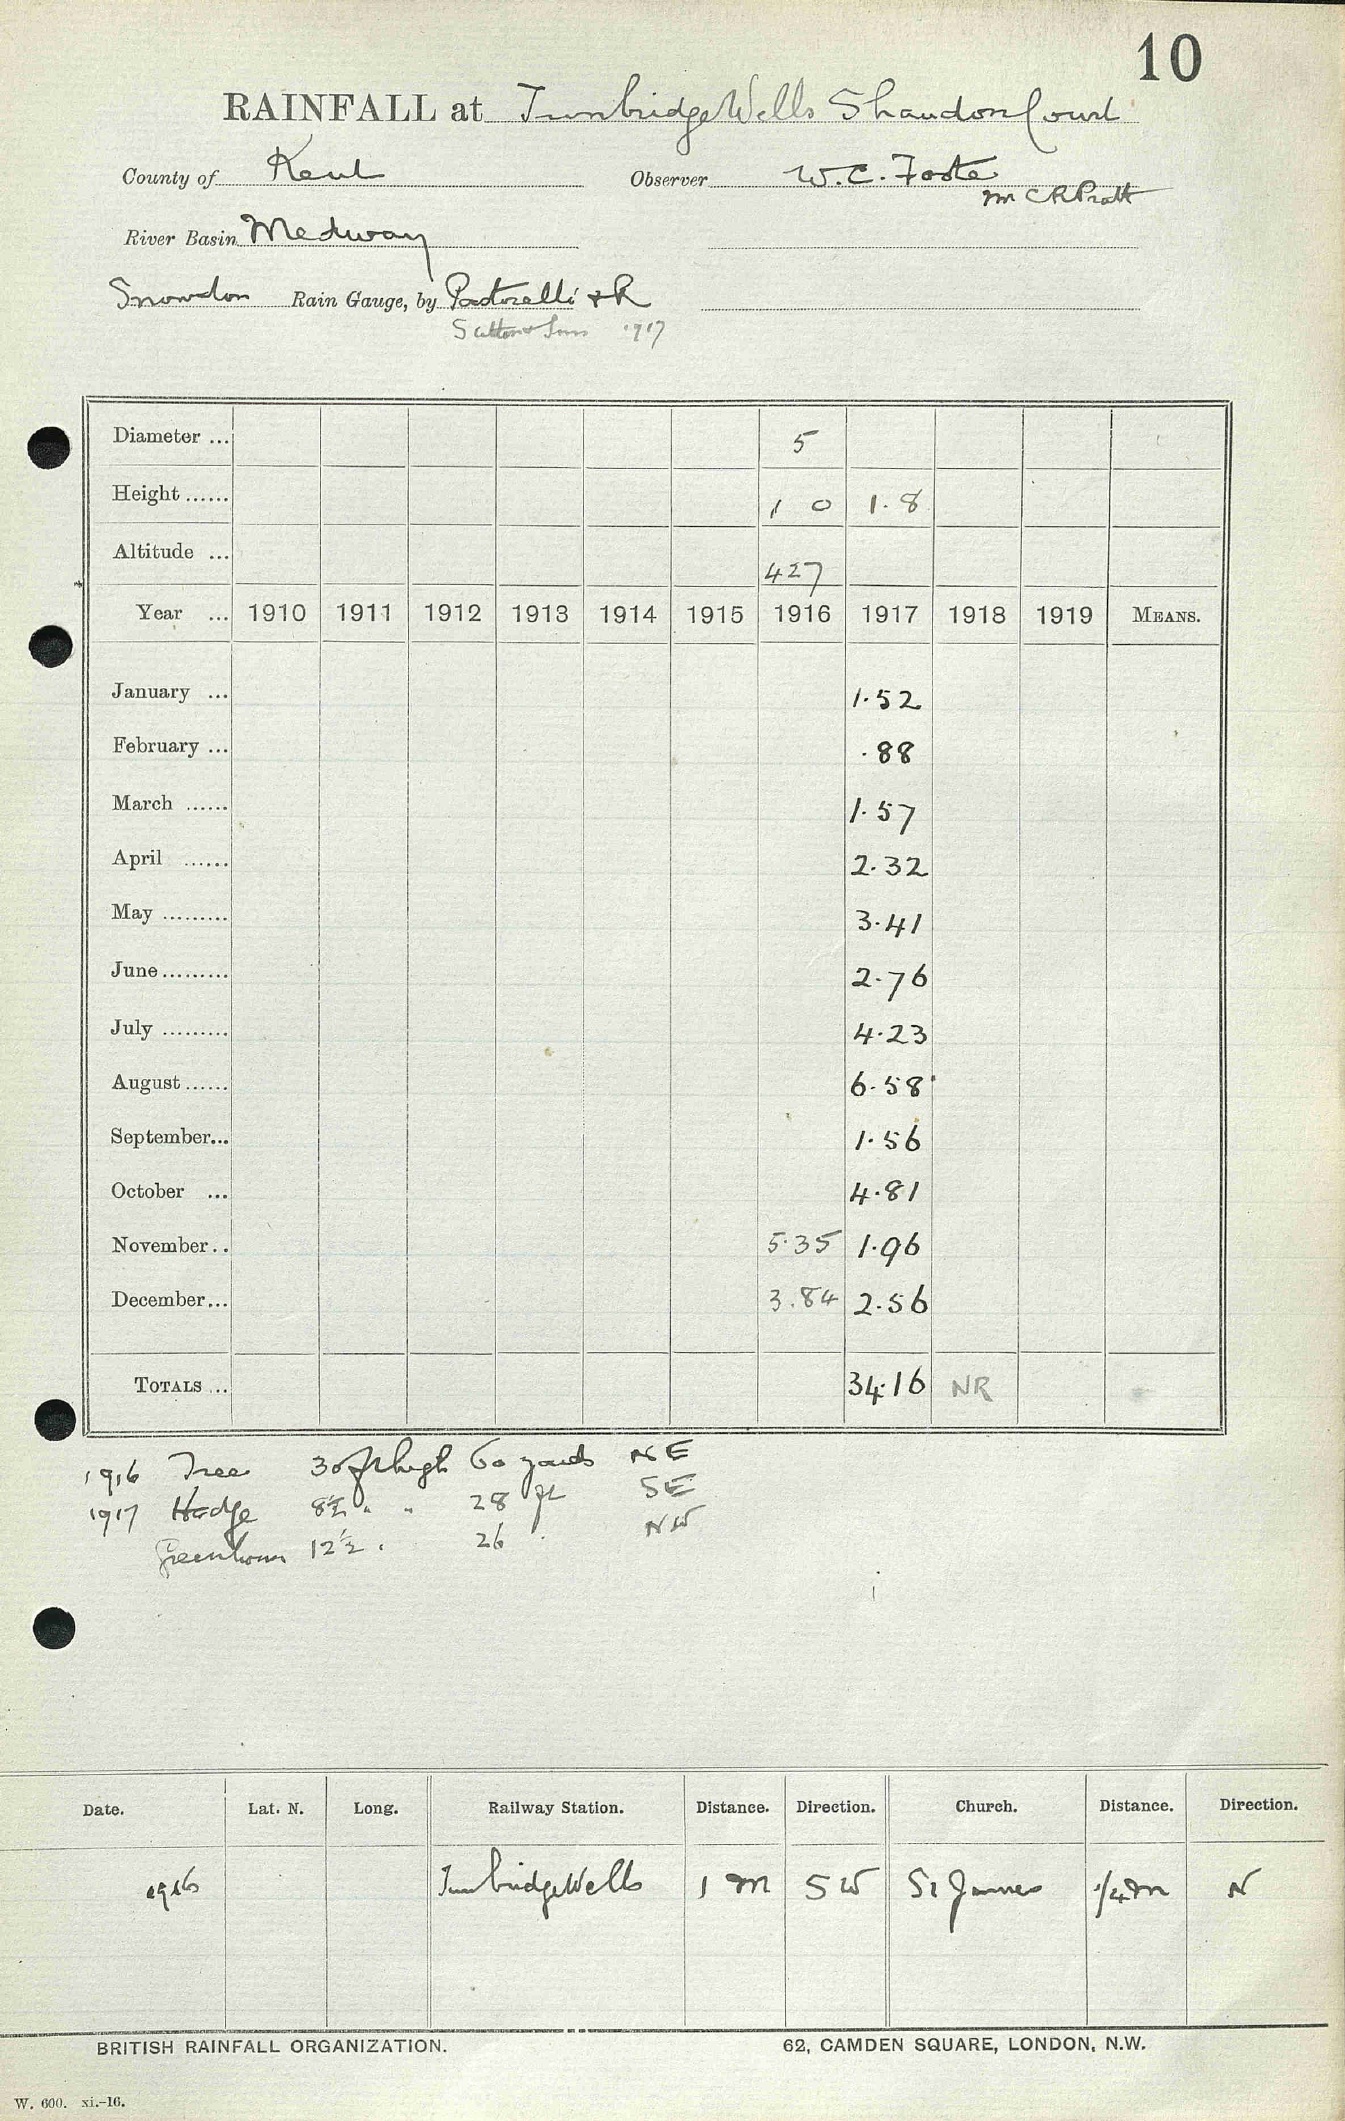 10
RAINFALL at Tunbridge Wells Shandon Court
County of Kent Observer W. C. Foote
Mr C R Pratt
River Basin Medway
Snowdon Rain Gauge, by Pastorelli & R
Sutton & Sons 1917
Diameter ... 5
Height ...... 1 0 1.8
Altitude ... 427
Year ... 1910 1911 1912 1913 1914 1915 1916 1917 1918 1919 MEANS.
January ... 1.52
February ... .88
March ...... 1.57
April ...... 2.32
May ......... 3.41
June ......... 2.76
July ......... 4.23
August ...... 6.58
September... 1.56
October ... 4.81
November.. 5.35 1.96
December... 3.84 2.56
TOTALS ... 34.16 NR
1916 Tree 30 ft high 60 yards NE
1917 Hedge 8½ " " 28 ft SE
Greenhouse 12½ " 26 " NW
Date. Lat. N. Long. Railway Station. Distance. Direction. Church. Distance. Direction.
1916 Tunbridge Wells 1 m SW St James ¼ m N
BRITISH RAINFALL ORGANIZATION. 62, CAMDEN SQUARE, LONDON, N.W.
W. 600. xi.-16.